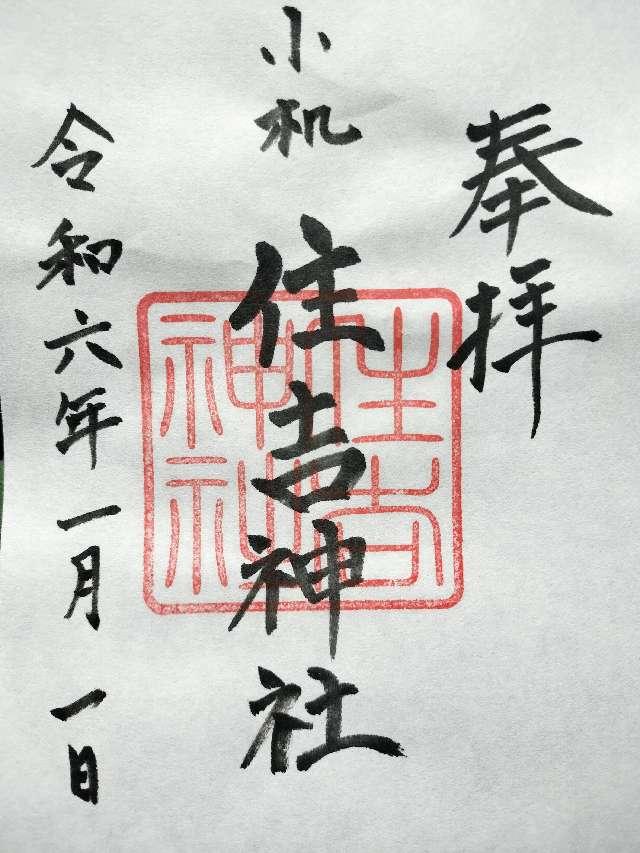 奉拝
小机
住吉神社
令和六年一月一日
住吉神社